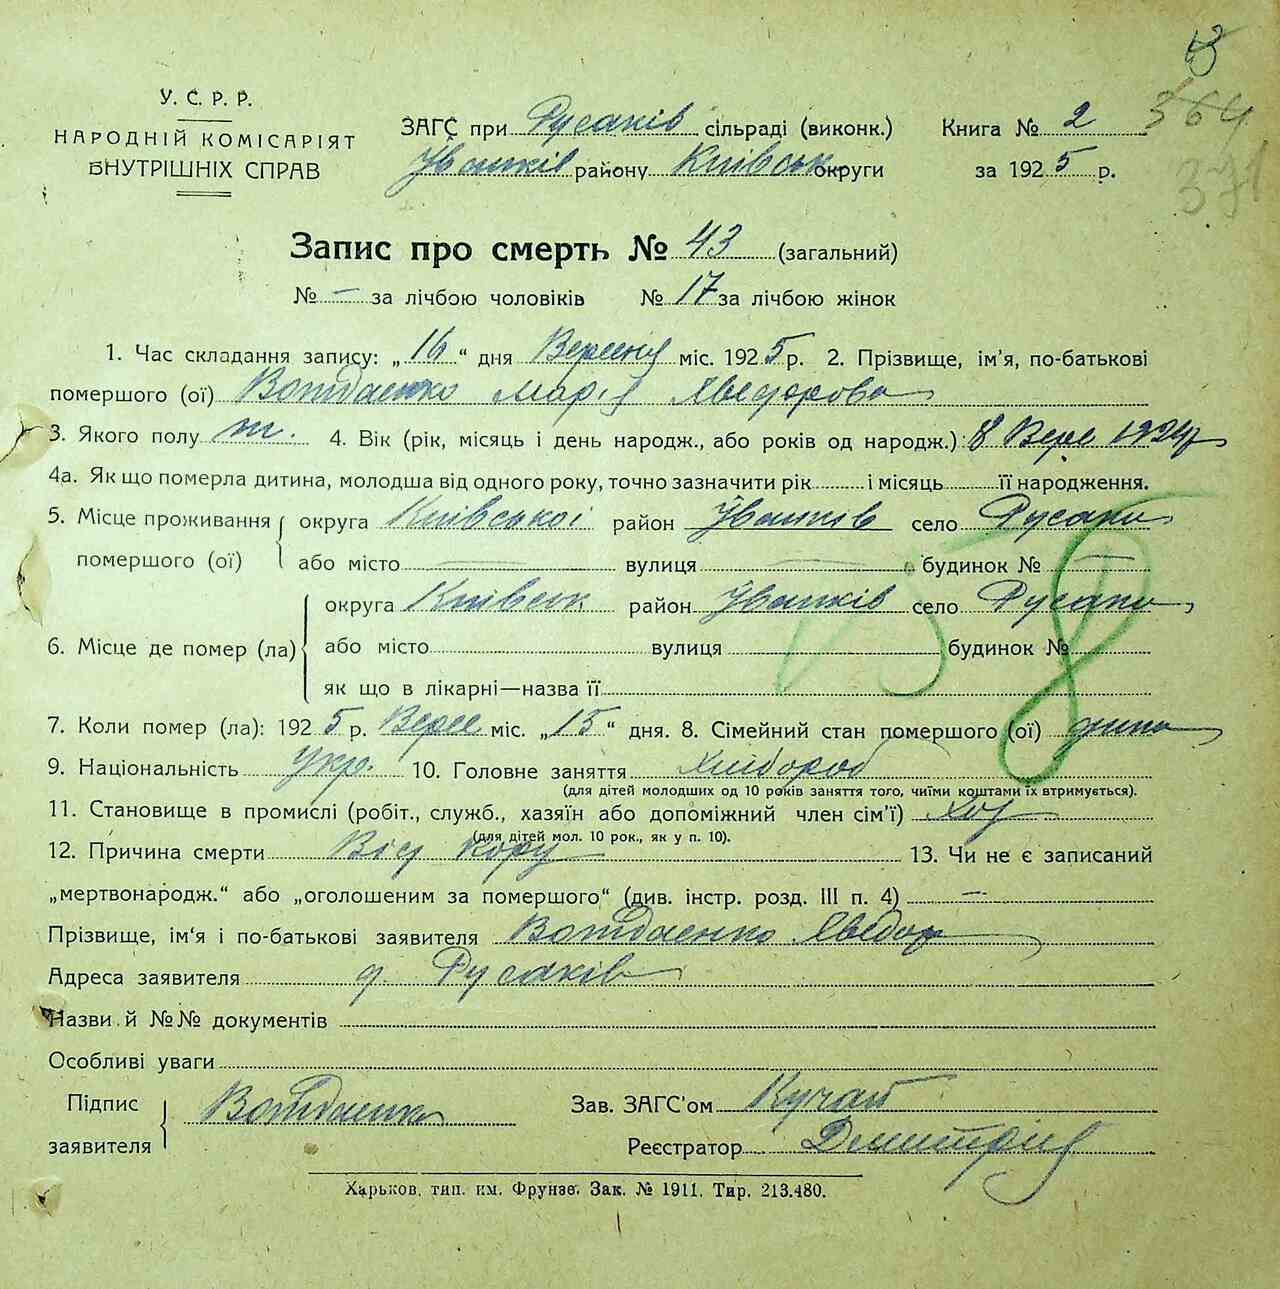 У. С. Р. Р.
НАРОДНІЙ КОМІСАРІЯТ
ВНУТРІШНІХ СПРАВ
ЗАГС при Русаків сільраді (виконк.)
Іванків району Київськ округи
Книга № 2
за 1925 р.
364
371
Запис про смерть № 43 (загальний)
№ — за лічбою чоловіків № 17 за лічбою жінок
1. Час складання запису: „16“ дня Вересня міс. 1925 р. 2. Прізвище, ім'я, по-батькові
помершого (ої) Марія
3. Якого полу ж. 4. Вік (рік, місяць і день народж., або років од народж.): 8 Вере 1924 р
4а. Як що померла дитина, молодша від одного року, точно зазначити рік і місяць її народження.
5. Місце проживання помершого (ої) округа Київської район Іванків село Русаки
або місто вулиця будинок №
6. Місце де помер (ла) округа Київськ район Іванків село Русаки
або місто вулиця будинок №
як що в лікарні—назва її
58
7. Коли помер (ла): 1925 р. Верес міс. „15“ дня. 8. Сімейний стан помершого (ої)
9. Національність укр. 10. Головне заняття Хлібороб
(для дітей молодших од 10 років заняття того, чиїми коштами їх втримується).
11. Становище в промислі (робіт., служб., хазяїн або допоміжний член сім'ї) Хоз
(для дітей мол. 10 рок., як у п. 10).
12. Причина смерти Від кору 13. Чи не є записаний
„мертвонародж.“ або „оголошеним за помершого“ (див. інстр. розд. III п. 4) —
Прізвище, ім'я і по-батькові заявителя
Адреса заявителя Русаків
Назви й №№ документів
Особливі уваги
Підпис заявителя
Зав. ЗАГС'ом Кучай
Реєстратор
Харьков, тип. им. Фрунзе. Зак. № 1911. Тир. 213.480.